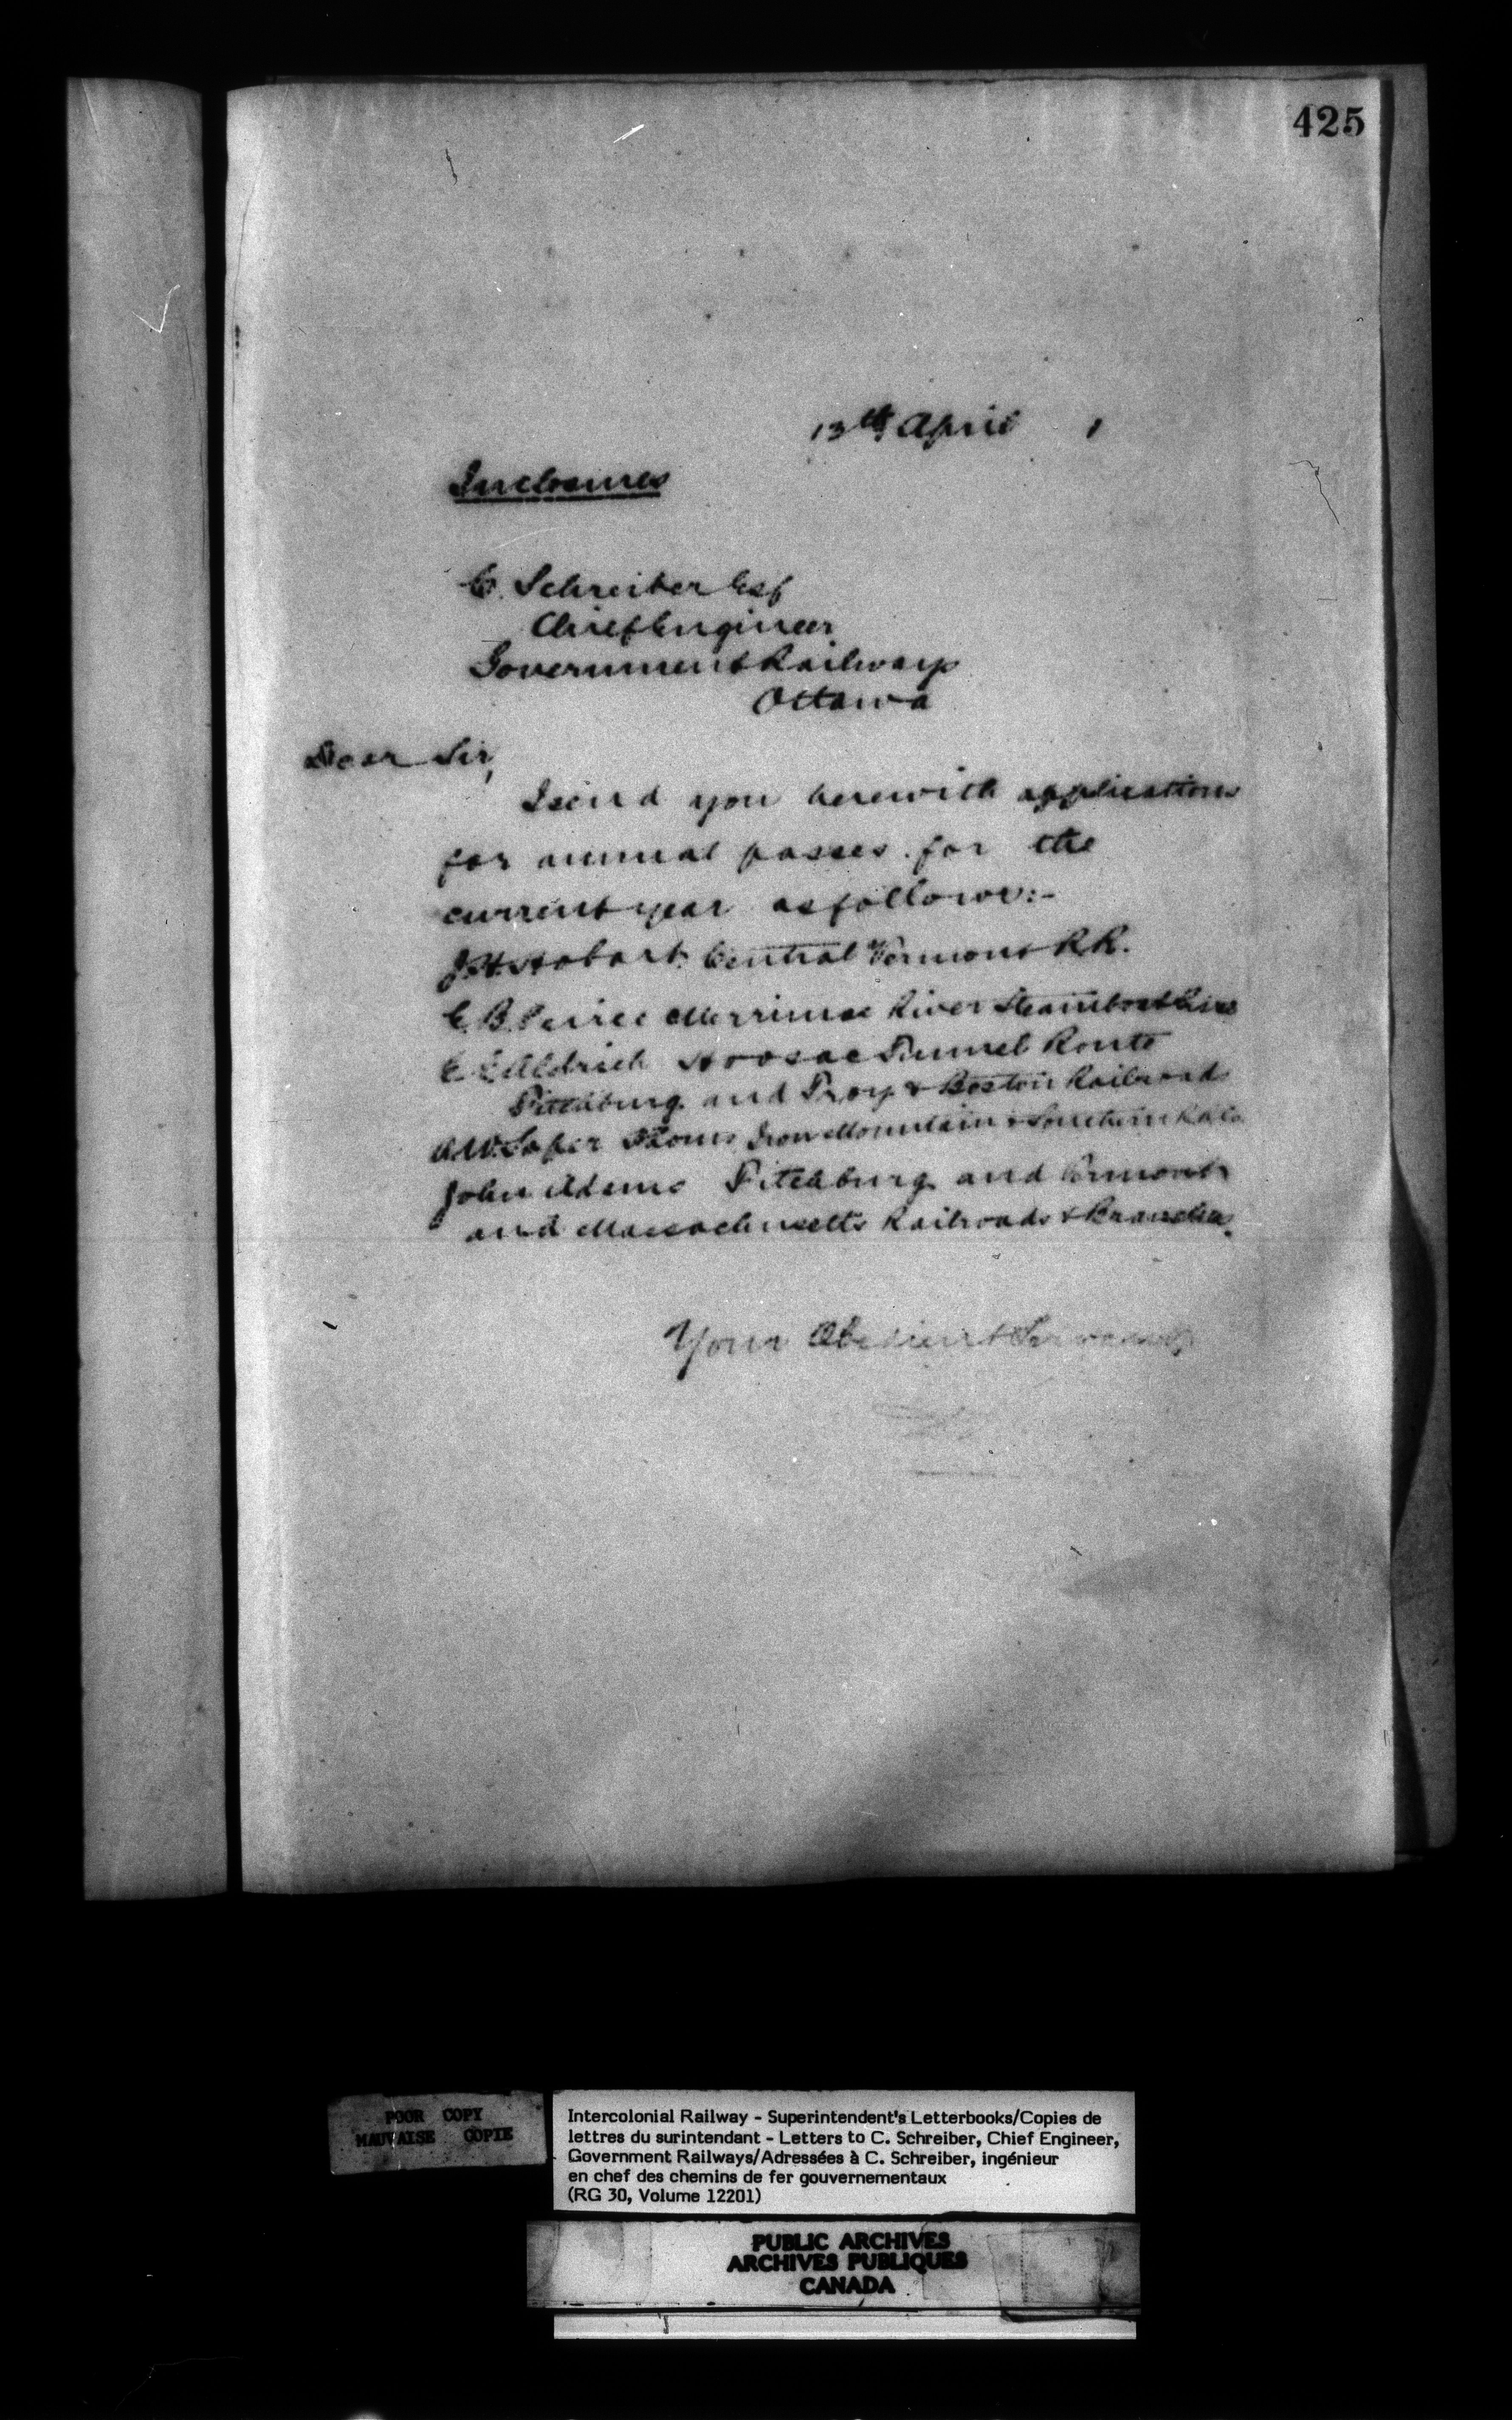 425
13th April 1
Inclosures
C. Schreiber Esq
Chief Engineer
Government Railways
Ottawa
Dear Sir,
I send you herewith applications
for annual passes for the
current year as follows:-
J.H. Hobart Central Vermont R.R.
C.B. Peirce Merrimac River Steamboat Line
C.E. Aldrich Hoosac Tunnel Route
Fitchburg and Troy & Boston Railroads
A.W. Soper Iron Mountain & Southern
John Adams Fitchburg and Vermont
and Massachusetts Railroads & Branches.
Your Obedient Servant,
POOR COPY
MAUVAISE COPIE
Intercolonial Railway - Superintendent's Letterbooks/Copies de
lettres du surintendant - Letters to C. Schreiber, Chief Engineer,
Government Railways/Adressées à C. Schreiber, ingénieur
en chef des chemins de fer gouvernementaux
(RG 30, Volume 12201)
PUBLIC ARCHIVES
ARCHIVES PUBLIQUES
CANADA